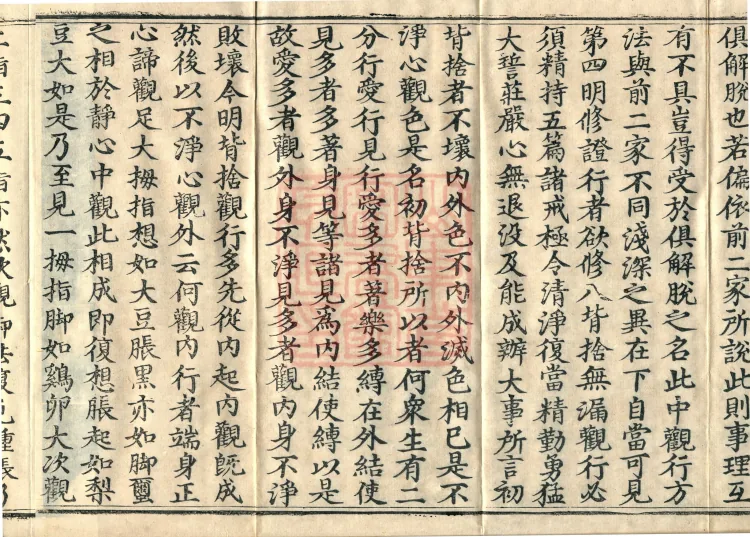 俱解脫也若偏依前二家所說此則事理互
有不具豈得受於俱解脫之名此中觀行方
法與前二家不同淺深之異在下自當可見
第四明修證行者欲修八背捨無漏觀行必
須精持五篇諸戒極令清淨復當精勤勇猛
大誓莊嚴心無退没及能成辦大事所言初
背捨者不壞内外色不内外滅色相已是不
淨心觀色是名初背捨所以者何衆生有二
分行愛行見行愛多者著樂多縛在外結使
見多者多著身見等諸見為内結使縛以是
故愛多者觀外身不淨見多者觀内身不淨
敗壞今明背捨觀行多先從内起内觀既成
然後以不淨心觀外云何觀内行者端身正
心諦觀足大拇指想如大豆脹黑亦如脚璽
之相於靜心中觀此相成即復想脹起如梨
豆大如是乃至見一拇指脚如鷄卵大次觀
二指三四五指亦然次觀脚法復見腫脹乃